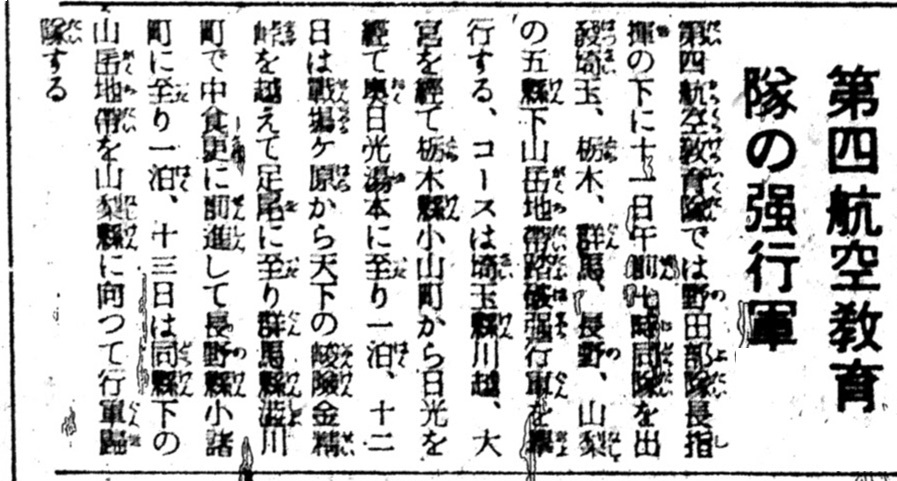 第四航空教育
隊の强行軍
第四航空敎育隊では野田部隊長指
揮の下に十一日午前七時同隊を出
發埼玉、栃木、群馬、長野、山梨
の五縣下山岳地帶踏破强行軍を擧
行する、コースは埼玉縣川越、大
宮を經て栃木縣小山町から日光を
經て奧日光湯本に至り一泊、十二
日は戰場ヶ原から天下の峻險金精
峠を越えて足尾に至り群馬縣澁川
町で中食更に前進して長野縣小諸
町に至り一泊、十三日は同縣下の
山岳地帶を山梨縣に向つて行軍歸
隊する